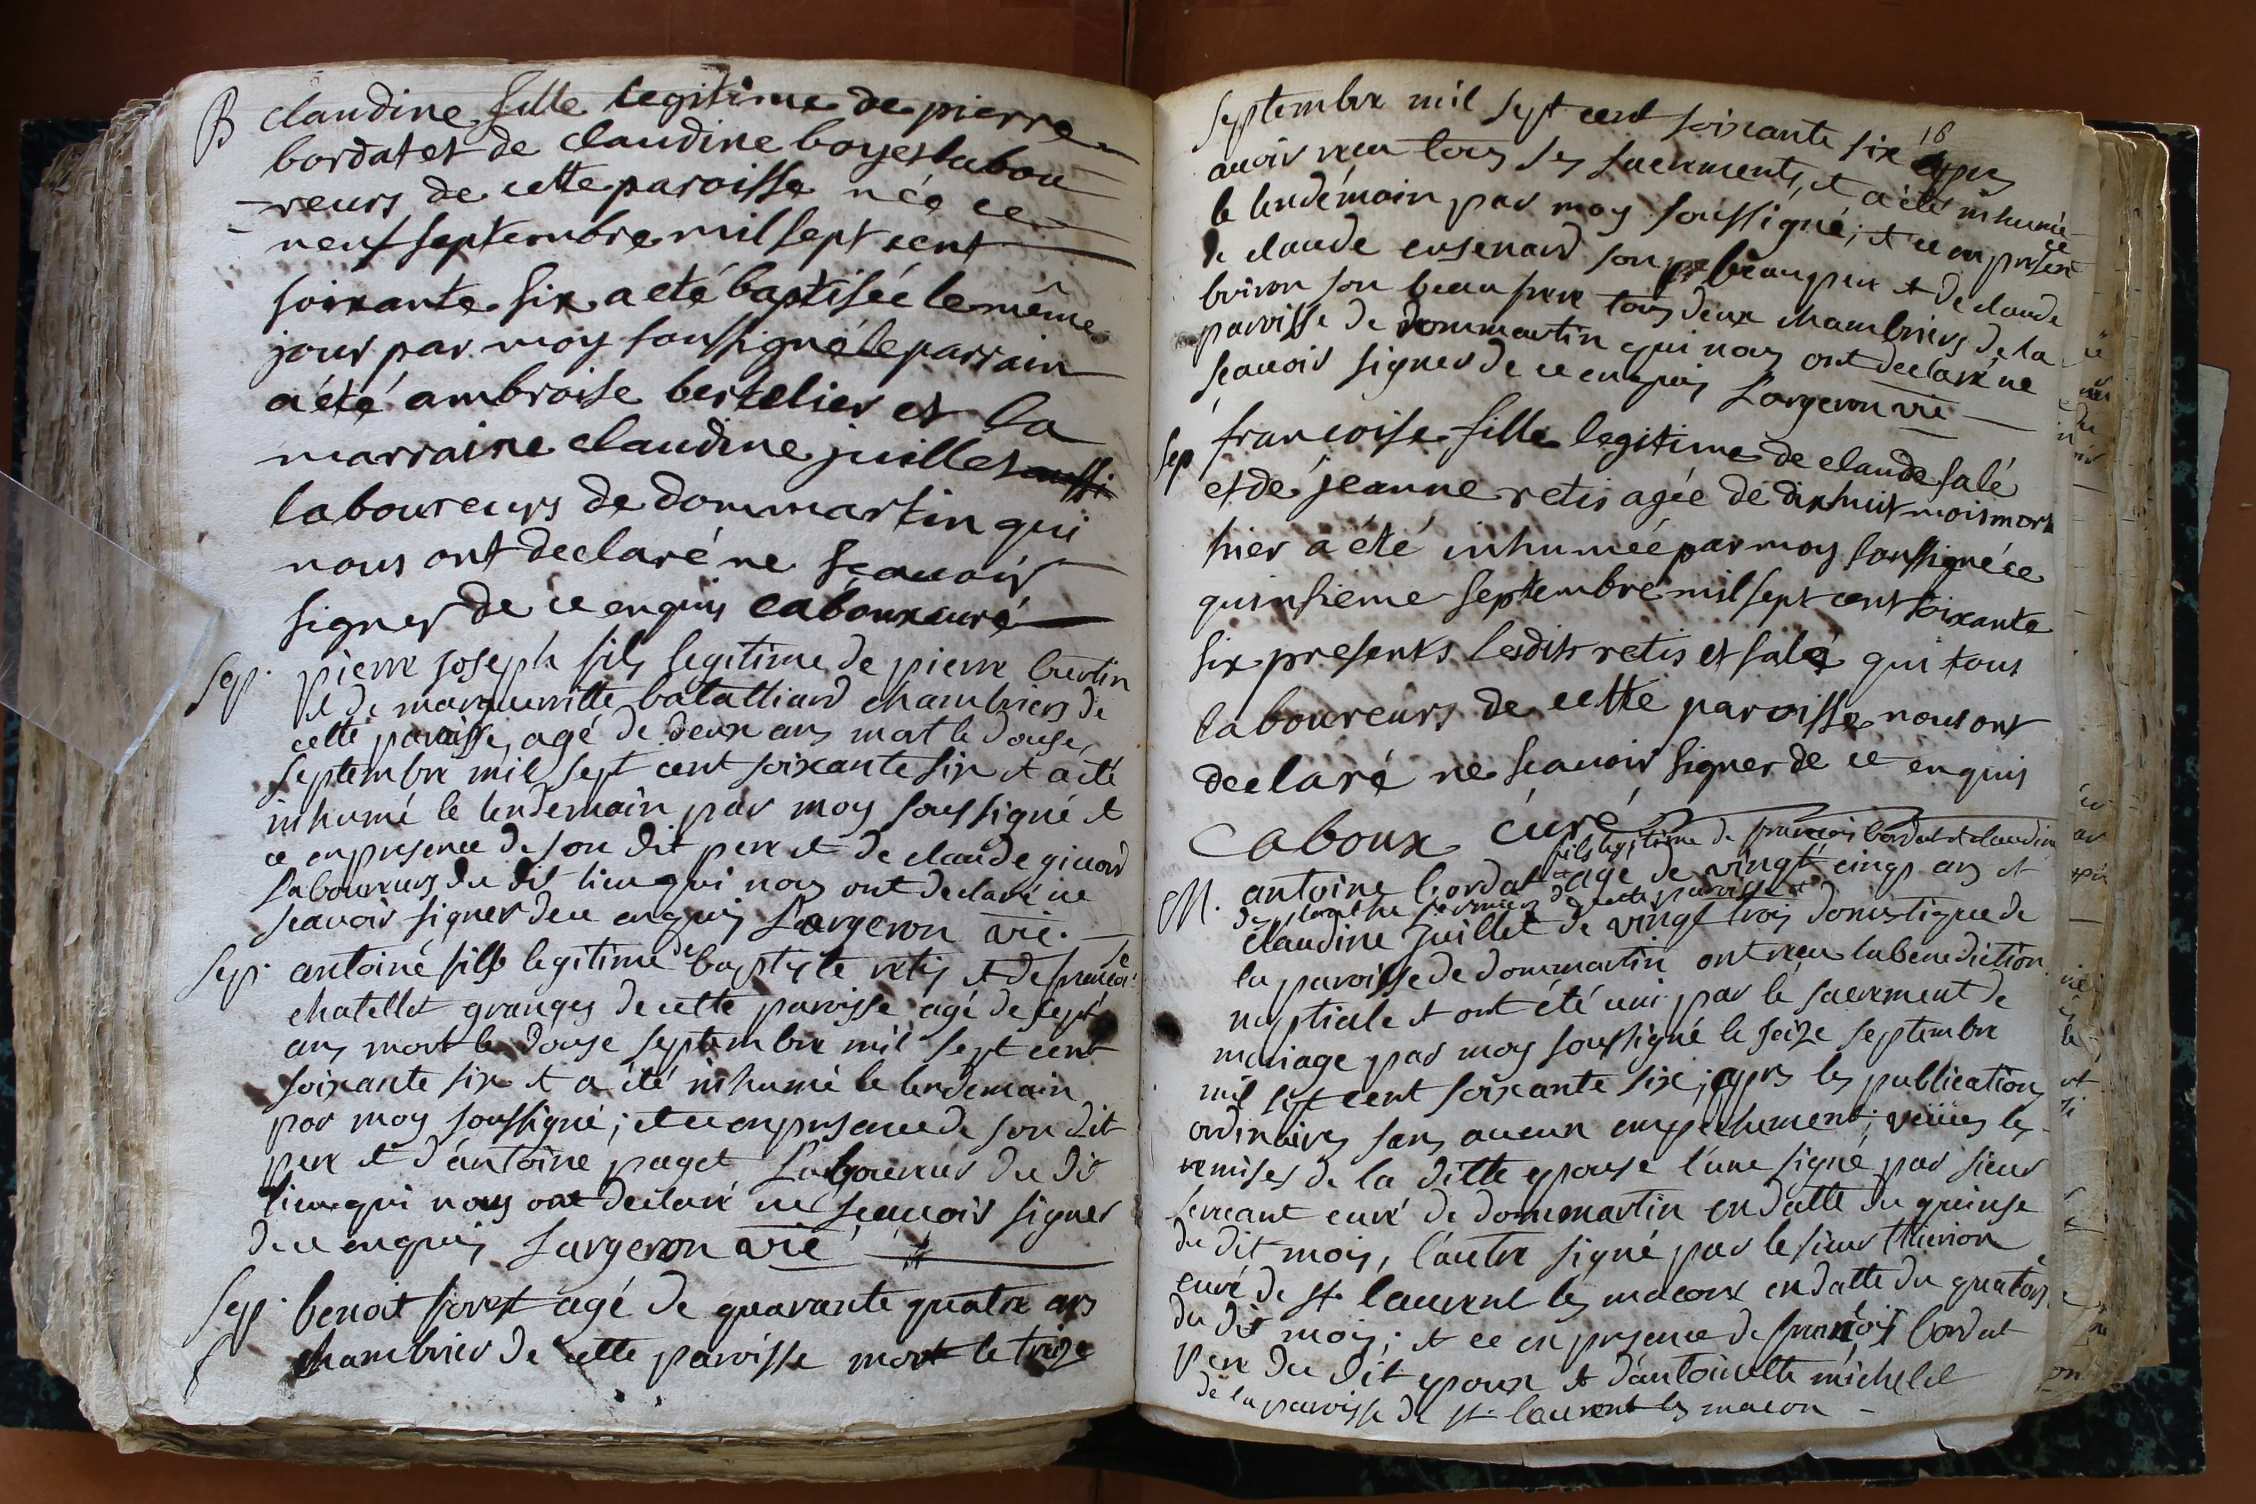 B claudine fille legitime de pierre
bordat et de claudine boyer labou
reurs de cette paroisse née ce
neuf septembre mil sept cent
soixante six a eté baptisée le même
jour par moy soussigné le parrain
a été ambroise bertelier et la
marraine claudine juillet aussi
laboureurs de dommartin qui
nous ont declaré ne scavoir
signer de ce enquis caboux curé
sep. pierre joseph fils legitime de pierre burtin
et de margueritte batalliard chambriers de
cette paroisse, agé de deux ans mort le douse
septembre mil sept cent soixante six et a été
inhumé le lendemain par moy soussigné et
ce en presence de son dit pere et de claude givord
laboureurs du dit lieu qui nous ont declaré ne
scavoir signer de ce enquis Largeron vic.
sep. antoine fils legitime de baptiste retis et de francoise
chatellet granges de cette paroisse agé de sept
ans mort le douse septembre mil sept cent
soixante six et a été inhumé le lendemain
par moy soussigné; et ce en presence de son dit
pere et d'antoine paget Laboureurs du dit
lieu qui nous ont declaré ne scavoir signer
de ce enquis Largeron vic
sep. benoit forest agé de quarante quatre ans
chambrier de cette paroisse mort le treize
18
septembre mil sept cent soixante six apres
avoir recu tous ses sacrements, et a été inhumé
le lendemain par moy soussigné; et ce en presence
de claude eusenard son beaupere et de claude
buiron son beaufrere tous deux chambriers de la
paroisse de dommartin qui nous ont declaré ne
scavoir signer de ce enquis Largeron vic
sep francoise fille legitime de claude salé
et de jeanne retis agée de dixhuit mois morte
hier a été inhumée par moy soussigné ce
quinsieme septembre mil sept cent soixante
six presents lesdits retis et salé qui tous
laboureurs de cette paroisse nous ont
declaré ne scavoir signer de ce enquis
Caboux curé
fils legitime de francois bordat et claudine
M. antoine bordat agé de vingt cinq ans et
fermiers de cette paroisse et
claudine juillet de vingt trois domestique de
la paroisse de dommartin ont recu la benediction
nuptiale et ont été uni par le sacrement de
mariage par moy soussigné le seize septembre
mil sept cent soixante six; apres les publications
ordinaires sans aucun empechement; veües les
remises de la ditte epouse l'une signé par sieur
curé de dommartin en datte du quinse
du dit mois, l'autre signé par le sieur thivion
curé de st. laurent les macons en datte du quatorse
du dit mois; et ce en presence de francois bordat
pere du dit epoux et d'antoinette michelet
de la paroisse de st. laurent les macon